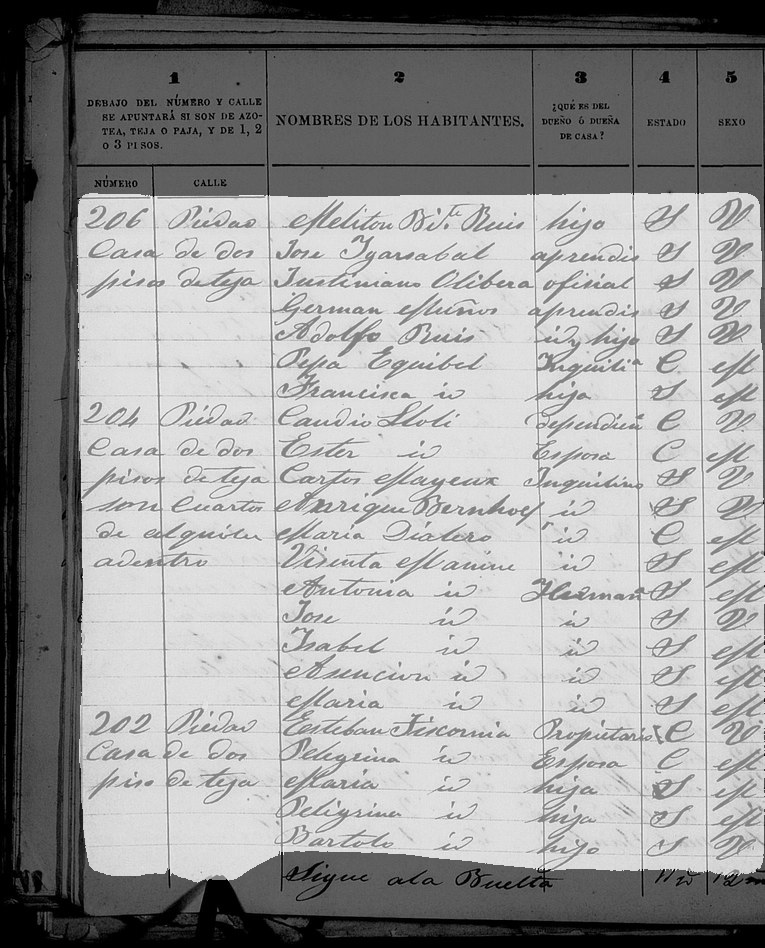 1 2 3 4 5
DEBAJO DEL NÚMERO Y CALLE
SE APUNTARÁ SI SON DE AZO-
TEA, TEJA O PAJA, Y DE 1, 2
O 3 PISOS.
NOMBRES DE LOS HABITANTES.
¿QUÉ ES DEL
DUEÑO Ó DUEÑA
DE CASA?
ESTADO
SEXO
NÚMERO CALLE
206 Piedad Meliton Bi.te Ruis hijo S V
Casa de dos Jose Ygarsabal aprendis S V
pisos de teja Justiniano Olibera ofisial S V
German Muños aprendis S V
Adolfo Ruis id hijo S V
Pepa Equibel Inquilia C M
Francisca id hija S M
204 Piedad Caudio Stoli dependien C V
Casa de dos Ester id Esposa C M
pisos de teja Cartos Mayeux Inquilino S V
son Cuartos Anrique Bernhoef id S V
de alquiler Maria Dialero id C M
adentro Visenta Manine id S M
Antonia id Herman S M
Jose id id S V
Isabel id id S M
Asencion id id S M
Maria id id S M
202 Piedad Esteban Fiscornia Propietario C V
Casa de dos Pelegrina id Esposa C M
piso de teja Maria id hija S M
Peligrina id hija S M
Bartolo id hijo S V
Sigue ala Buelta